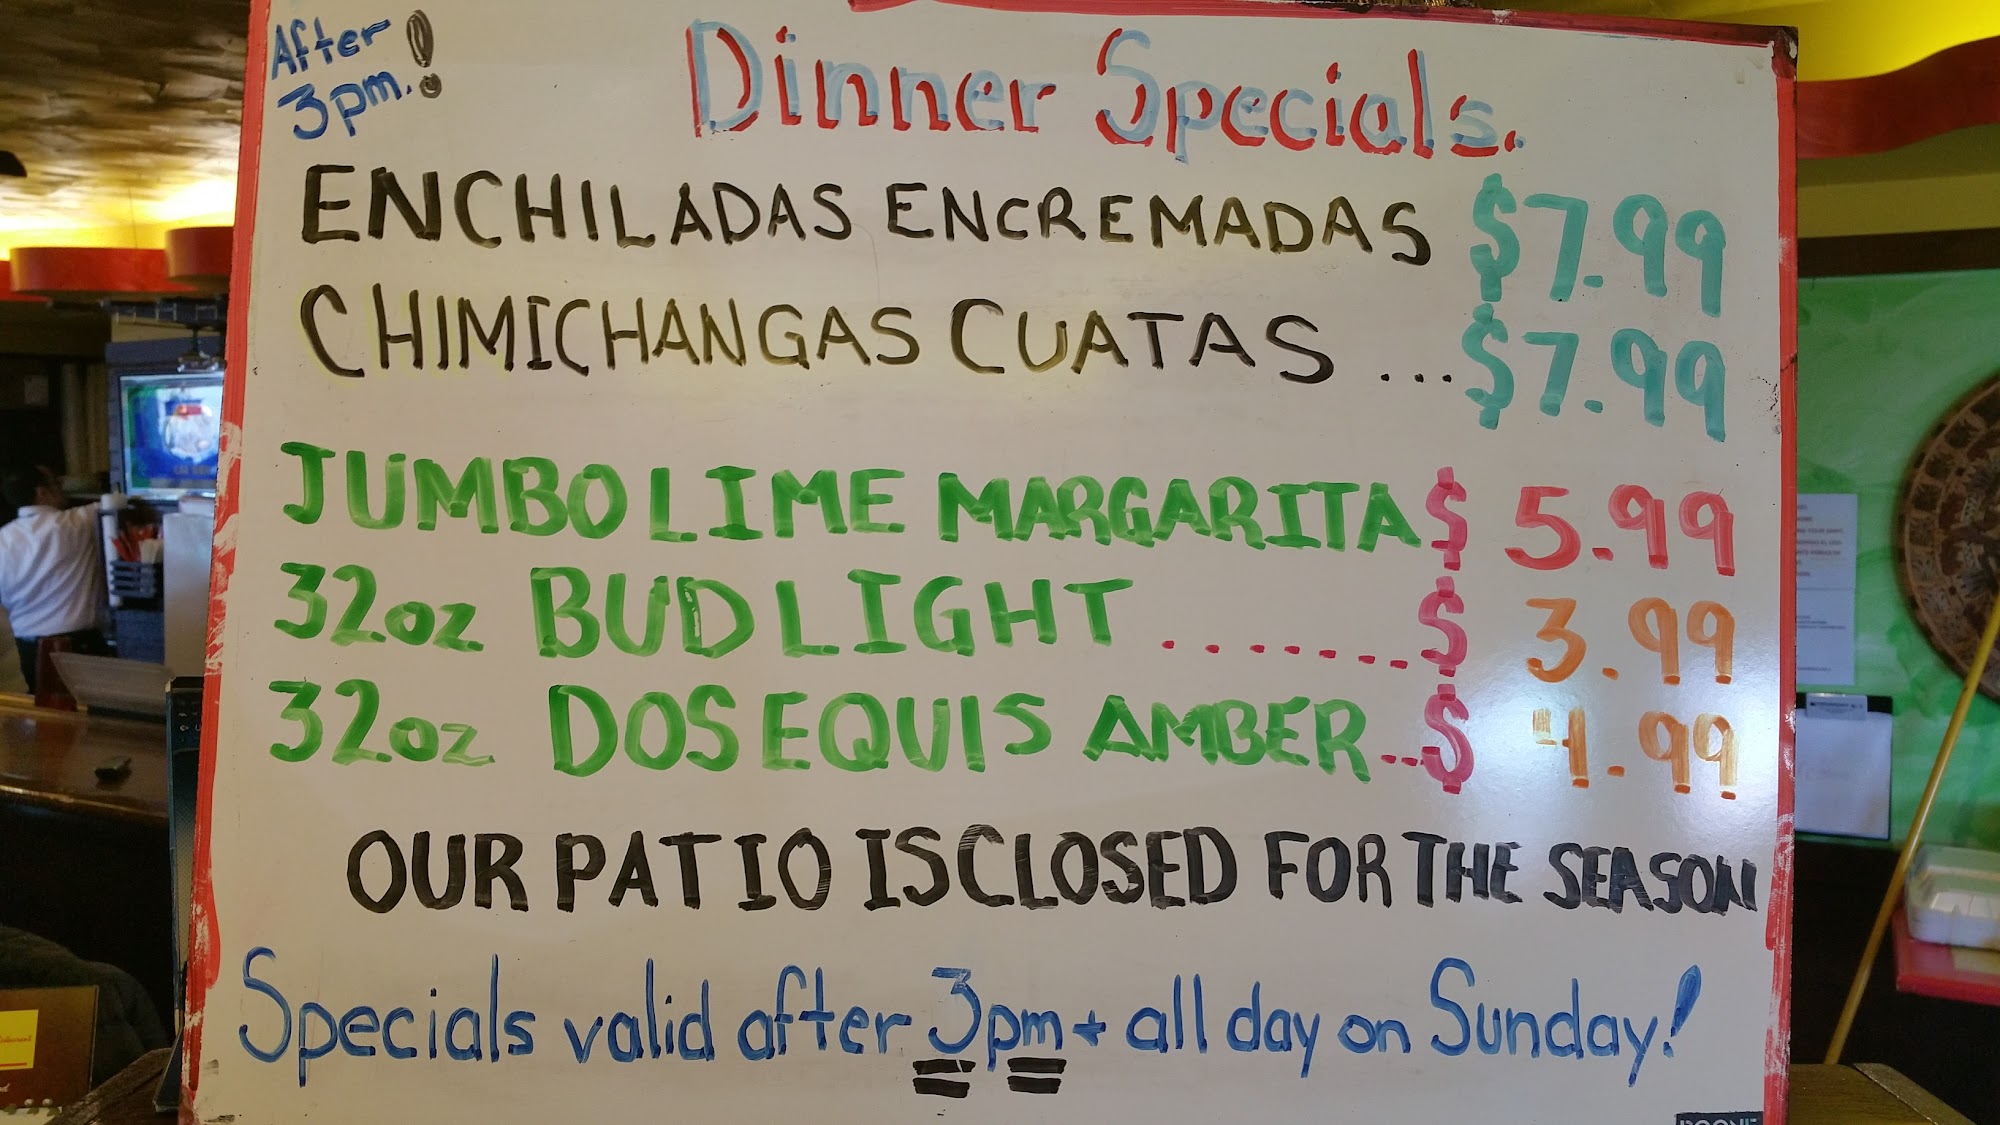 After
3pm.!
Dinner Specials.
ENCHILADAS ENCREMADAS $7.99
CHIMICHANGAS CUATAS ... $7.99
JUMBO LIME MARGARITA $ 5.99
32oz BUD LIGHT ....... $ 3.99
32oz DOS EQUIS AMBER ... $ 4.99
OUR PATIO IS CLOSED FOR THE SEASON
Specials valid after 3pm + all day on Sunday!